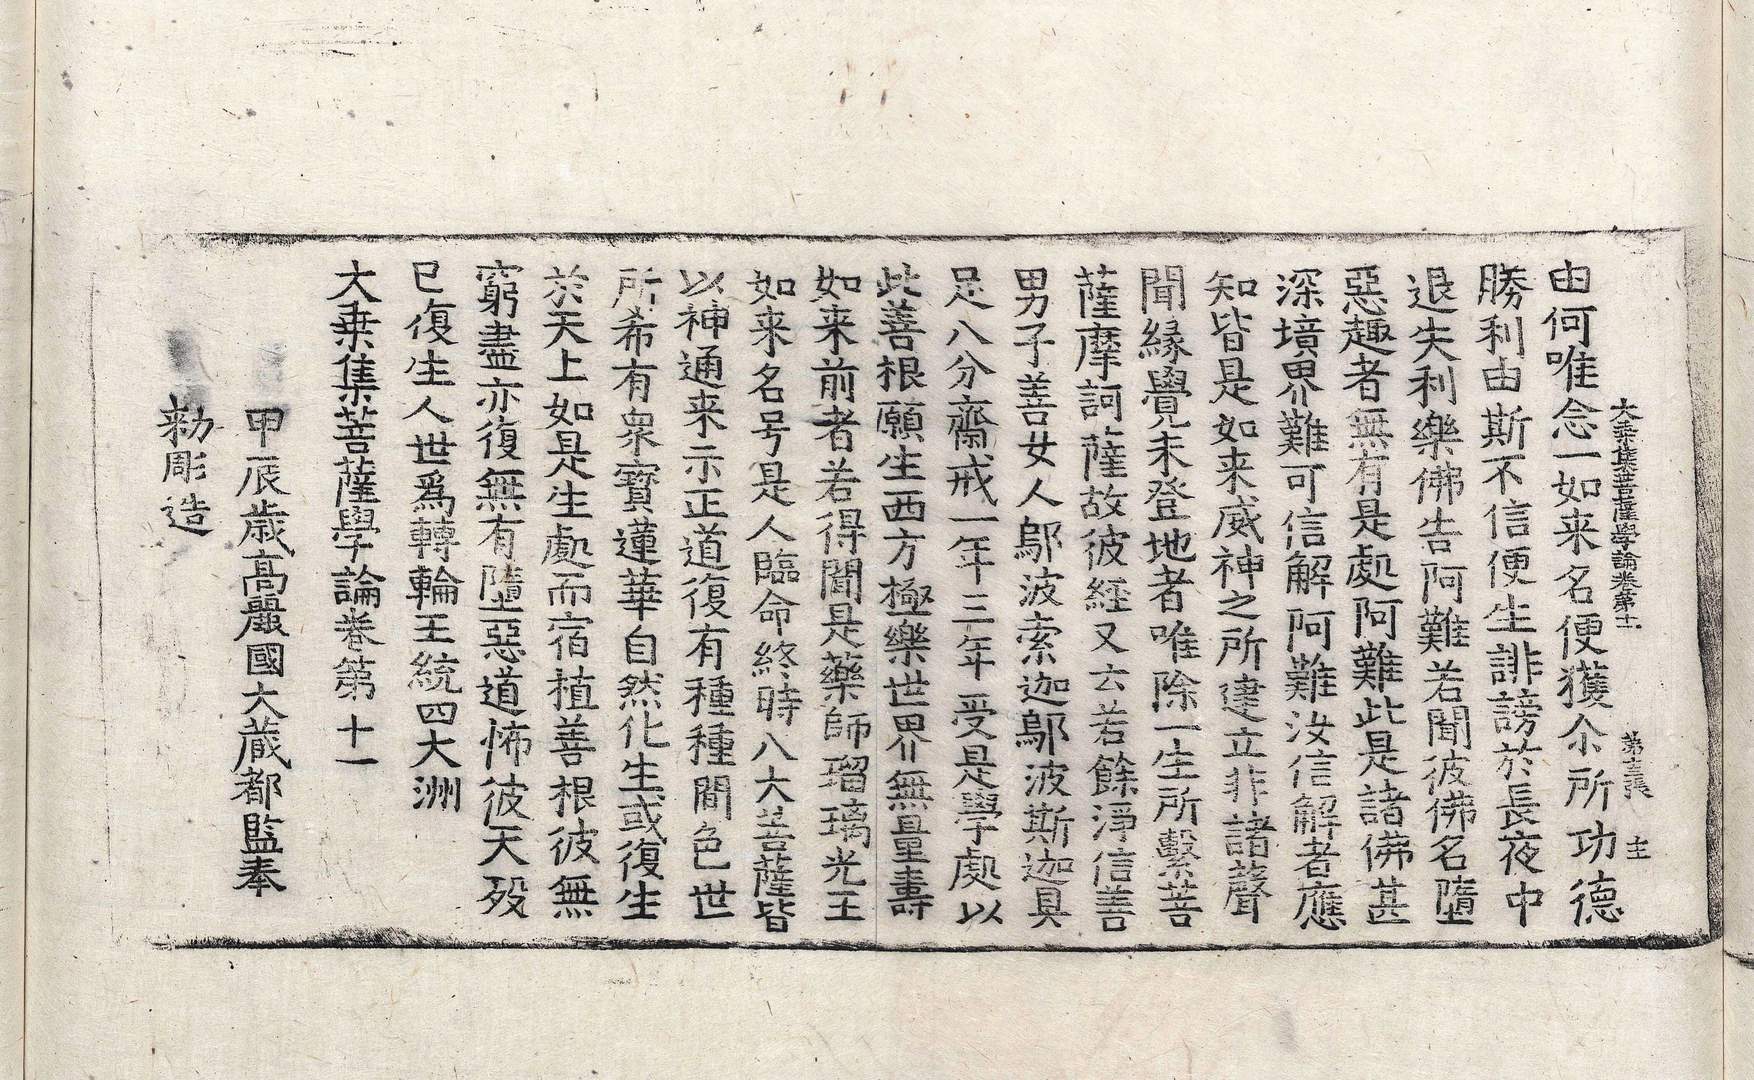 大乗集菩薩學論卷第十一 第十五張 主
由何唯念一如来名便獲尒所功德
勝利由斯不信便生誹謗於長夜中
退失利樂佛告阿難若聞彼佛名墮
惡趣者無有是處阿難此是諸佛甚
深境界難可信解阿難汝信解者應
知皆是如来威神之所建立非諸聲
聞縁覺未登地者唯除一生所繫菩
薩摩訶薩故彼經又云若餘淨信善
男子善女人鄔波索迦鄔波斯迦具
足八分齋戒一年三年受是學處以
此善根願生西方極樂世界無量壽
如来前者若得聞是藥師瑠璃光王
如来名号是人臨命終時八大菩薩皆
以神通来示正道復有種種間色世
所希有衆寶蓮華自然化生或復生
於天上如是生處而宿植善根彼無
窮盡亦復無有墮惡道怖彼天歿
已復生人世爲轉輪王統四大洲
大乗集菩薩學論卷第十一
甲辰歳高麗國大蔵都監奉
勑彫造